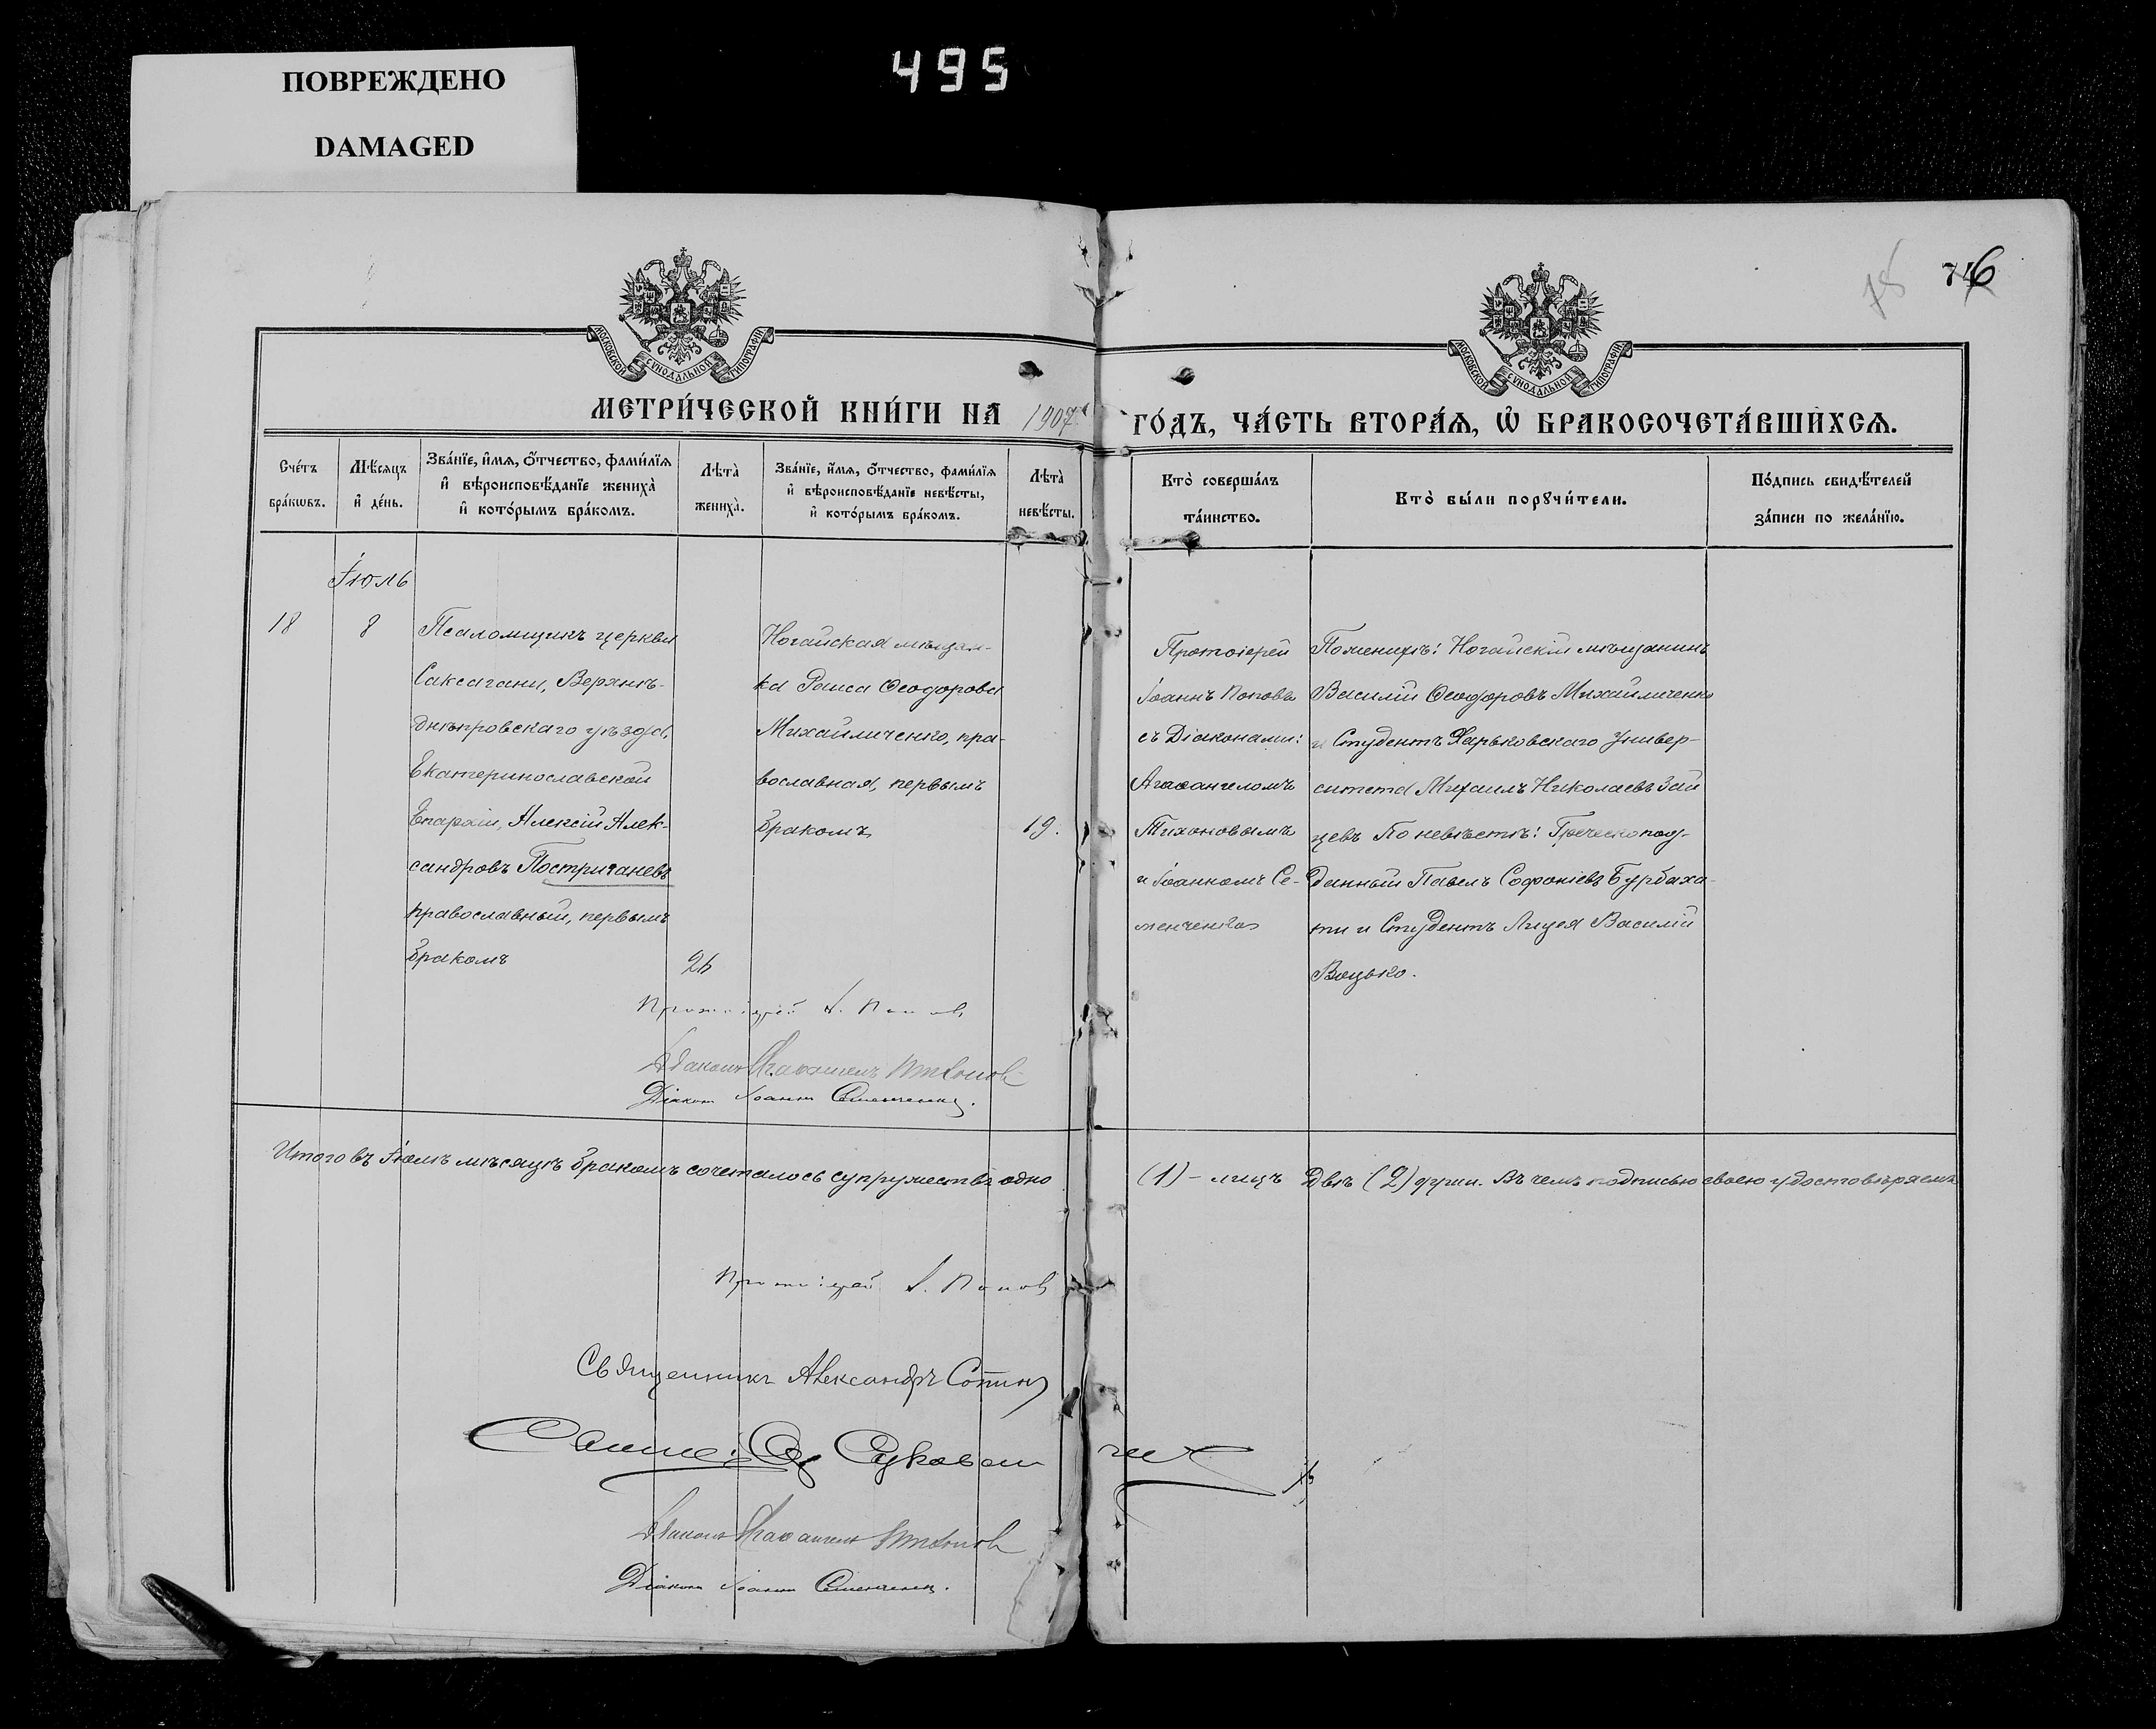 ПОВРЕЖДЕНО
DAMAGED
495
75
76
МОСКОВСКОЙ СѴНОДАЛЬНОЙ ТИПОГРАФІИ
МОСКОВСКОЙ СѴНОДАЛЬНОЙ ТИПОГРАФІИ
МЕТРИ́ЧЕСКОЙ КНИ́ГИ НА 1907 ГО́ДЪ, ЧА́СТЬ ВТОРА́Ѧ, Ѡ҆ БРАКОСОЧЕТА́ВШИХСѦ.
Сче́тъ
бра́кѡвъ.
Мѣ́сяцъ
и҆ де́нь.
Зва́нїе, и҆́мѧ, ѻ҆́тчество, фами́лїѧ
и҆ вѣроисповѣ́данїе жениха̀
и҆ кото́рымъ бра́комъ.
Лѣта̀
жениха̀.
Зва́нїе, и҆́мѧ, ѻ҆́тчество, фами́лїѧ
и҆ вѣроисповѣ́данїе невѣ́сты,
и҆ кото́рымъ бра́комъ.
Лѣта̀
невѣ́сты.
Кто̀ соверша́лъ
та́инство.
Кто̀ бы́ли порꙋчи́тели.
По́дпись свидѣ́телей
за́писи по жела́нїю.
Іюль
18
8
Псаломщикъ церкви
Саксагани, Верхнѣ-
днѣпровскаго уѣзда,
Екатеринославской
Епархіи, Алексій Алек-
сандровъ Постригановъ
православный, первымъ
бракомъ
26
Ногайская мѣщан-
ка Раиса Ѳеодорова
Михайличенко, пра-
вославная, первымъ
бракомъ
19.
Протоіерей
Іоаннъ Поповъ
съ Діаконами:
Агаѳангеломъ
Тихоновымъ
и Іоанномъ Се-
менченко
По женихѣ: Ногайскій мѣщанинъ
Василій Ѳеодоровъ Михайличенко
и Студентъ Харьковскаго Универ-
ситета Михаилъ Николаевъ Зай
цевъ По невѣстѣ: Греческоподданный
Павелъ Софоніевъ Бурбаха-
ти и Студентъ Лицея Василій
Протоіерей І. Поповъ
Діаконъ Агаѳангелъ Тихоновъ
Діаконъ Іоаннъ Семенченко.
Итого въ Іюлѣ мѣсяцѣ бракомъ сочеталось супружествъ одно (1) – лицъ Двѣ (2) души. Въ чемъ подписью своею удостовѣряемъ
Протоіерей І. Поповъ
Священникъ Александръ Сотинъ
Діаконъ Агаѳангелъ Тихоновъ
Діаконъ Іоаннъ Семенченко.